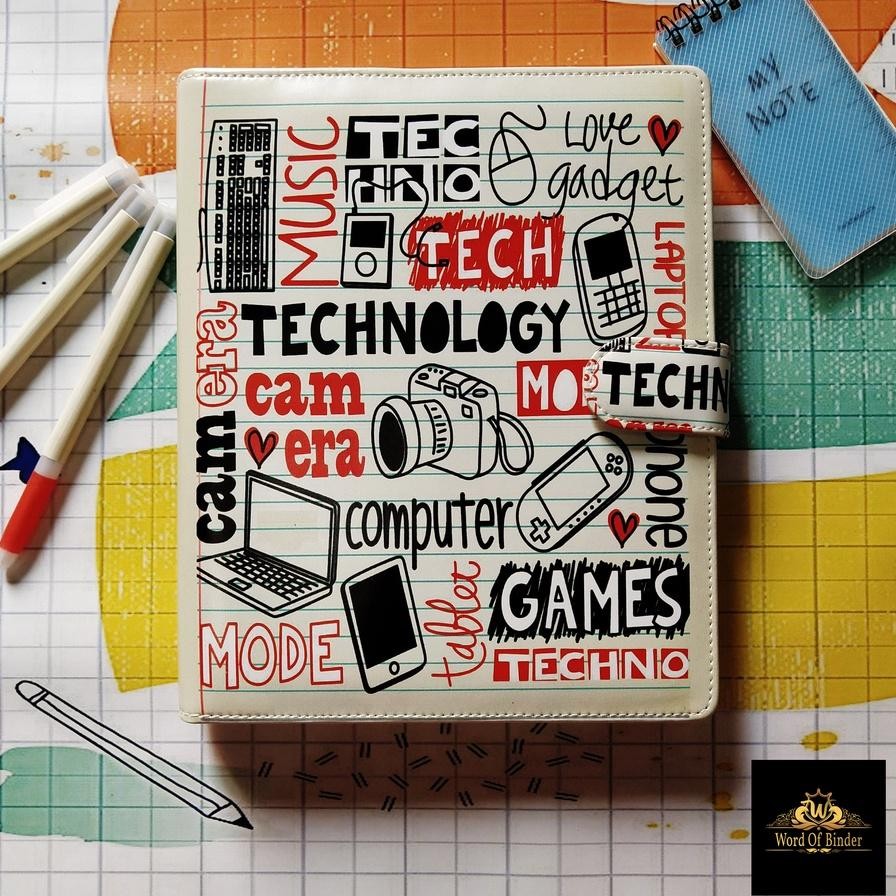 MY
NOTE
MUSIC
TEC
HNO
Love
gadget
TECH
LAPTO
TECHNOLOGY
camera
cam
era
MO
TECHN
phone
camera
computer
GAMES
MODE
tablet
TECHNO
W
Word Of Binder